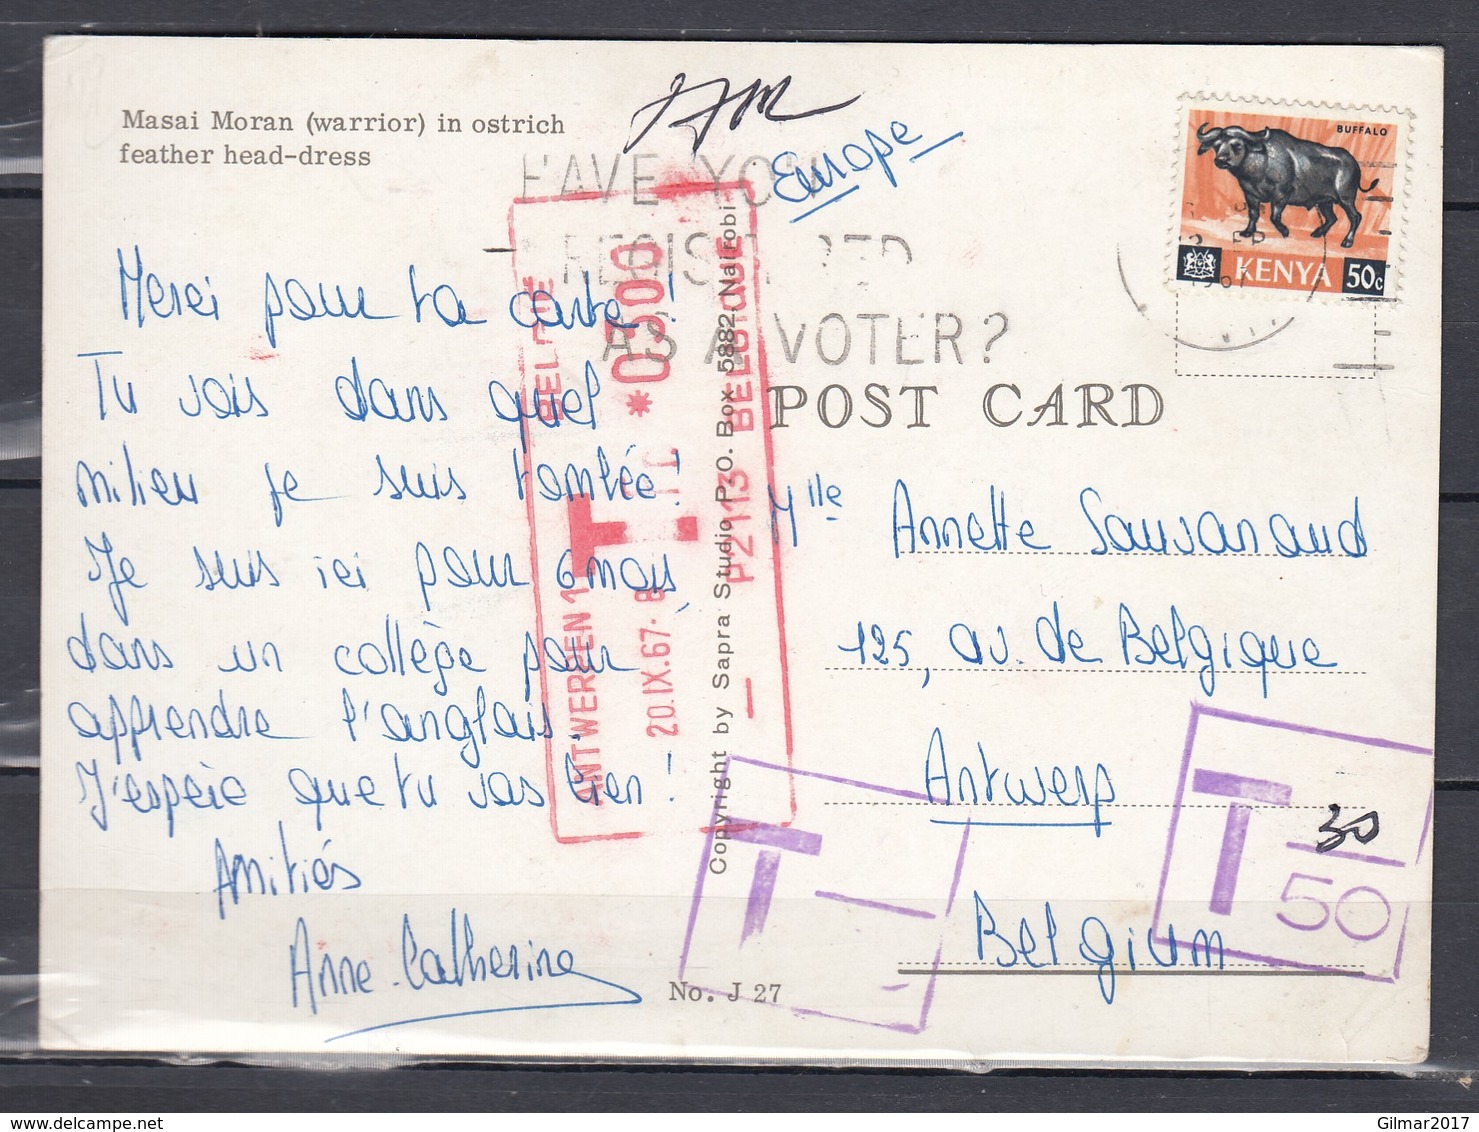 Masai Moran (warrior) in ostrich
feather head-dress
Europe
BUFFALO
KENYA 50c
AVE YOU
AS A VOTER?
POST CARD
Merci pour ta carte!
Tu vois dans quel
milieu je suis tombée!
Je suis ici pour 6 mois,
dans un collège pour
apprendre l'anglais.
J'espère que tu vas bien!
Amitiés
Anne-Catherine
BELGIE *0300 BELGIQUE
ANTWERPEN 1 T P2113
20.IX.67-8
Copyright by Sapra Studio P.O. Box 5882, Nairobi
Mlle Annette Sauvanaud
125, av. de Belgique
Antwerp
Belgium
T
T 30
50
No. J 27
Gilmar2017